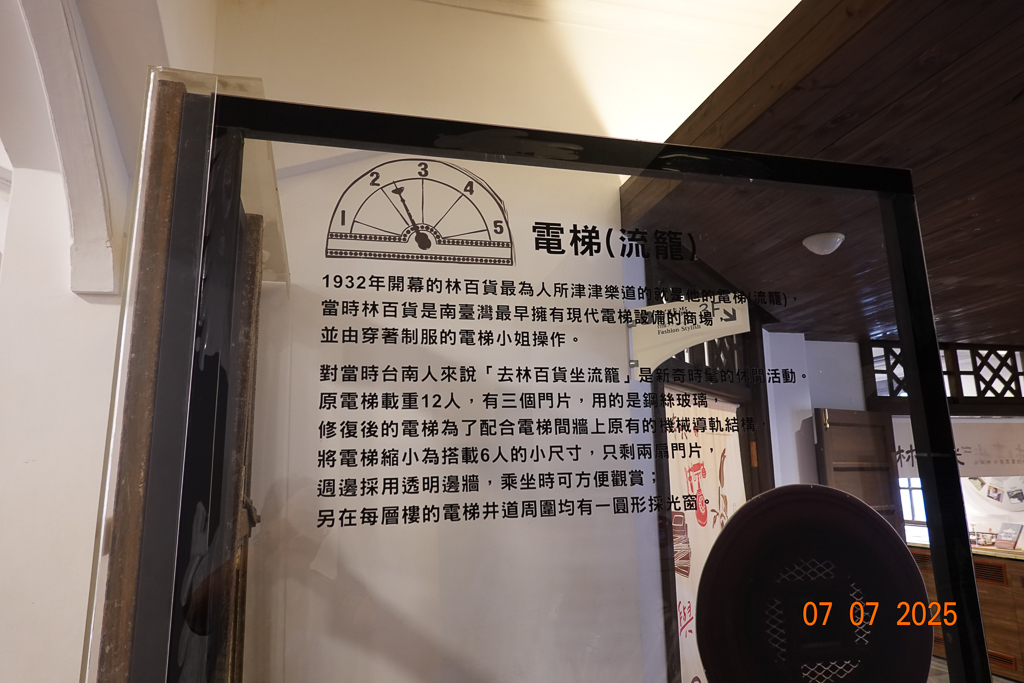 1 2 3 4 5
電梯(流籠)
1932年開幕的林百貨最為人所津津樂道的就是他的電梯(流籠),
當時林百貨是南臺灣最早擁有現代電梯設備的商場
並由穿著制服的電梯小姐操作。
對當時台南人來說「去林百貨坐流籠」是新奇時髦的休閒活動。
原電梯載重12人,有三個門片,用的是鋼絲玻璃,
修復後的電梯為了配合電梯間牆上原有的機械導軌結構,
將電梯縮小為搭載6人的小尺寸,只剩兩扇門片,
週邊採用透明邊牆,乘坐時可方便觀賞;
另在每層樓的電梯井道周圍均有一圓形採光窗。
3F
Fashion Stylish
林
與
07 07 2025